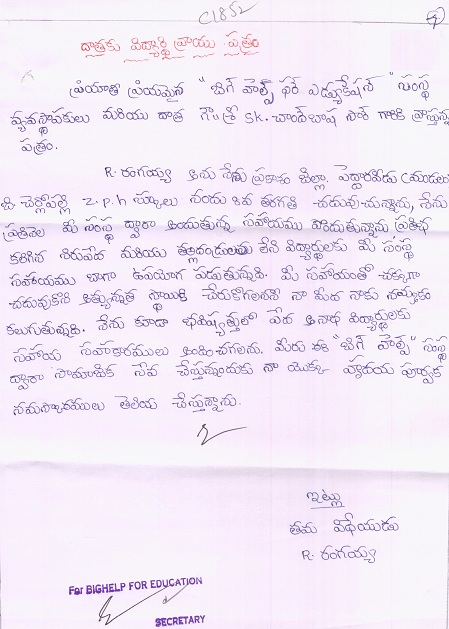 C1852
దాతకు విద్యార్థి వ్రాయు పత్రం
ప్రియాతి ప్రియమైన "బిగ్ హెల్ప్ ఫర్ ఎడ్యుకేషన్" సంస్థ
వ్యవస్థాపకులు మరియు దాత గౌ|| శ్రీ SK. చాంద్‌బాషా సార్ గారికి వ్రాస్తున్న
పత్రం.
R. రంగయ్య అను నేను ప్రకాశం జిల్లా. పెద్దారవీడు (మండలం)
చెర్లోపల్లి z.p.h స్కూలు నందు 10వ తరగతి చదువుచున్నాను, నేను
ప్రతినెల మీ సంస్థ ద్వారా అందుతున్న సహాయము పొందుతున్నాను ప్రతిభ
కలిగిన నిరుపేద మరియు తల్లిదండ్రులు లేని విద్యార్థులకు మీ సంస్థ
సహాయము బాగా ఉపయోగ పడుతున్నది. మీ సహాయంతో చక్కగా
చదువుకొని అత్యున్నత స్థాయికి చేరుకోగలనని నా మీద నాకు నమ్మకం
కలుగుతున్నది. నేను కూడా భవిష్యత్తులో పేద అనాథ విద్యార్థులకు
సహాయ సహకారములు అందించగలను. మీరు ఈ "బిగ్ హెల్ప్" సంస్థ
ద్వారా సామాజిక సేవ చేస్తున్నందుకు నా యొక్క హృదయ పూర్వక
నమస్కారములు తెలియ చేస్తున్నాను.
ఇట్లు
తమ విధేయుడు
R. రంగయ్య
For BIGHELP FOR EDUCATION
SECRETARY